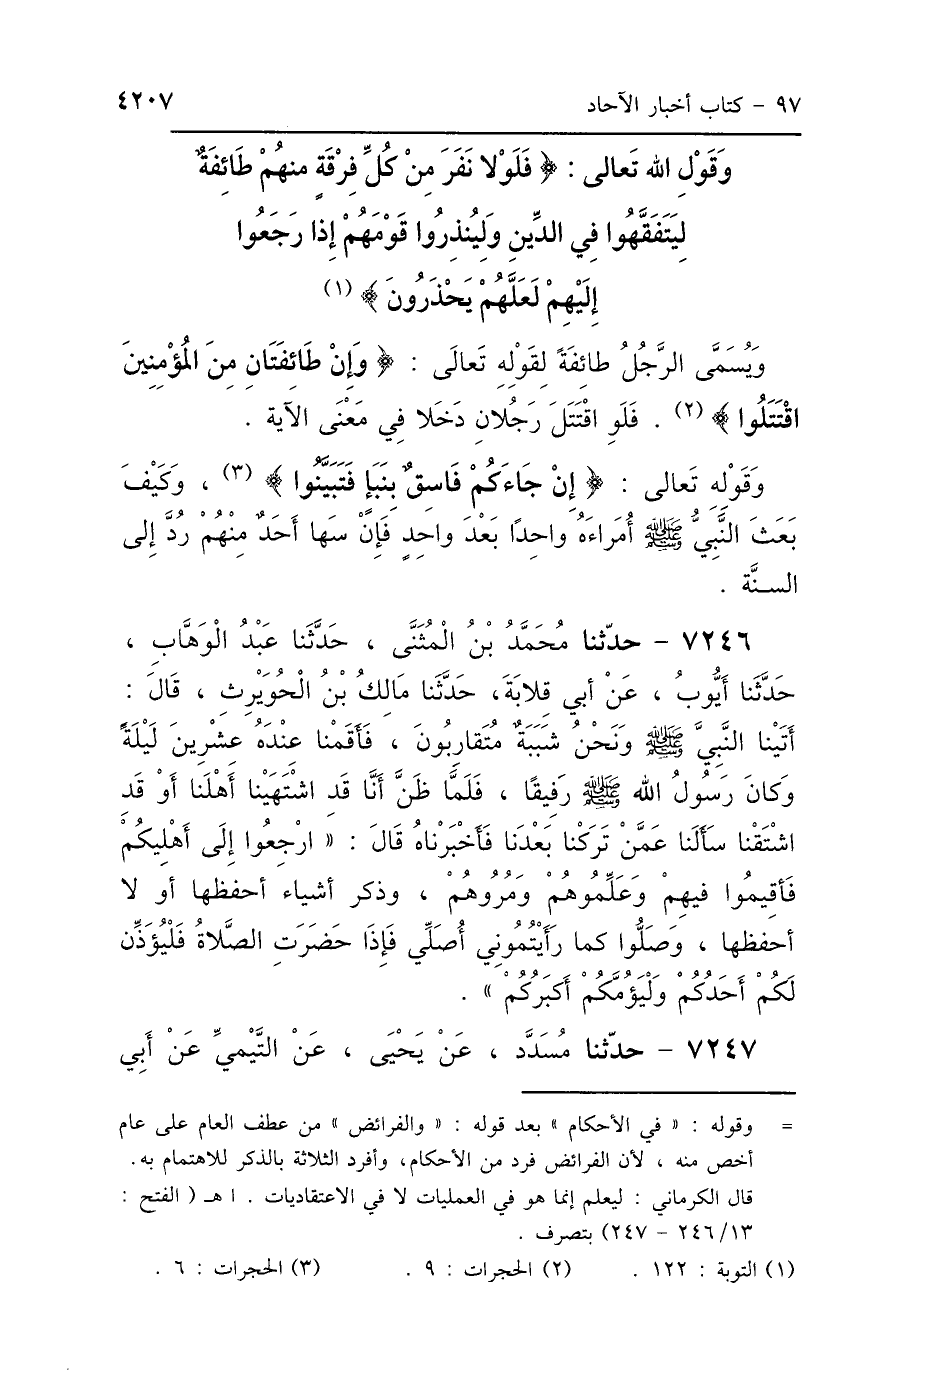 ٩٧ - كتاب أخبار الآحاد ٤٢٠٧
وَقَوْلِ الله تَعالى : ﴿ فَلَوْلا نَفَرَ مِنْ كُلِّ فِرْقَةٍ مِنهُمْ طَائِفَةٌ
لِيَتَفَقَّهُوا فِي الدِّينِ وَلِيُنذِرُوا قَوْمَهُمْ إِذا رَجَعُوا
إِلَيْهِمْ لَعَلَّهُمْ يَحْذَرُونَ ﴾ (١)
وَيُسَمَّى الرَّجُلُ طائِفَةً لِقَوْلِهِ تَعالَى : ﴿ وَإِنْ طَائِفَتَانِ مِنَ الْمُؤْمِنِينَ
اقْتَتَلُوا ﴾ (٢) . فَلَوِ اقْتَتَلَ رَجُلانِ دَخَلا فِي مَعْنَى الآية .
وَقَوْلِهِ تَعالى : ﴿ إِنْ جَاءَكُمْ فَاسِقٌ بِنَبَإٍ فَتَبَيَّنُوا ﴾ (٣) ، وَكَيْفَ
بَعَثَ النَّبِيُّ ﷺ أُمَرَاءَهُ واحِدًا بَعْدَ واحِدٍ فَإِنْ سَها أَحَدٌ مِنْهُمْ رُدَّ إِلى
السنَّة .
٧٢٤٦ - حدّثنا مُحَمَّدُ بْنُ الْمُثَنَّى ، حَدَّثَنا عَبْدُ الْوَهَّابِ ،
حَدَّثَنا أَيُّوبُ ، عَنْ أبي قِلابَةَ، حَدَّثَنا مَالِكُ بْنُ الْحُوَيْرِثِ ، قَالَ :
أَتَيْنا النَّبِيَّ ﷺ وَنَحْنُ شَبَبَةٌ مُتَقارِبُونَ ، فَأَقَمْنا عِنْدَهُ عِشْرِينَ لَيْلَةً
وَكانَ رَسُولُ الله ﷺ رَفِيقًا ، فَلَمَّا ظَنَّ أَنَّا قَد اشْتَهَيْنا أَهْلَنا أَوْ قَد
اشْتَقْنا سَأَلَنا عَمَّنْ تَرَكْنا بَعْدَنا فَأَخْبَرْناهُ قَالَ : « ارْجِعُوا إِلَى أَهْلِيكُمْ
فَأَقِيمُوا فِيهِمْ وَعَلِّمُوهُمْ وَمُرُوهُمْ ، وذكر أشياء أحفظها أو لا
أحفظها ، وَصَلُّوا كما رَأَيْتُمُوني أُصَلِّي فَإِذَا حَضَرَتِ الصَّلاةُ فَلْيُؤَذِّن
لَكُمْ أَحَدُكُمْ وَلْيَؤُمَّكُمْ أَكبَرُكُمْ » .
٧٢٤٧ - حدّثنا مُسَدَّد ، عَنْ يَحْيَى ، عَنْ التَّيْمِيِّ عَنْ أَبي
= وقوله : « في الأحكام » بعد قوله : « والفرائض » من عطف العام على عام
أخص منه ، لأن الفرائض فرد من الأحكام، وأفرد الثلاثة بالذكر للاهتمام به.
قال الكرماني : ليعلم إنما هو في العمليات لا في الاعتقاديات . ا هـ ( الفتح :
١٣/ ٢٤٦ - ٢٤٧) بتصرف .
(١) التوبة : ١٢٢ . (٢) الحجرات : ٩ . (٣) الحجرات : ٦ .